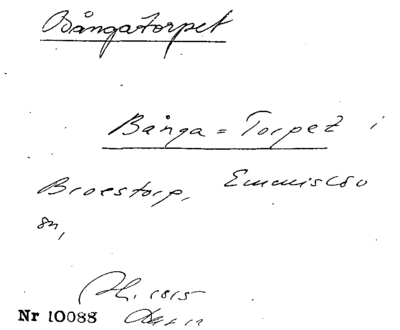 Bångatorpet
Bånga = Torpet i
Broestorp, Emmislöo
sn,
1815
Nr 10088